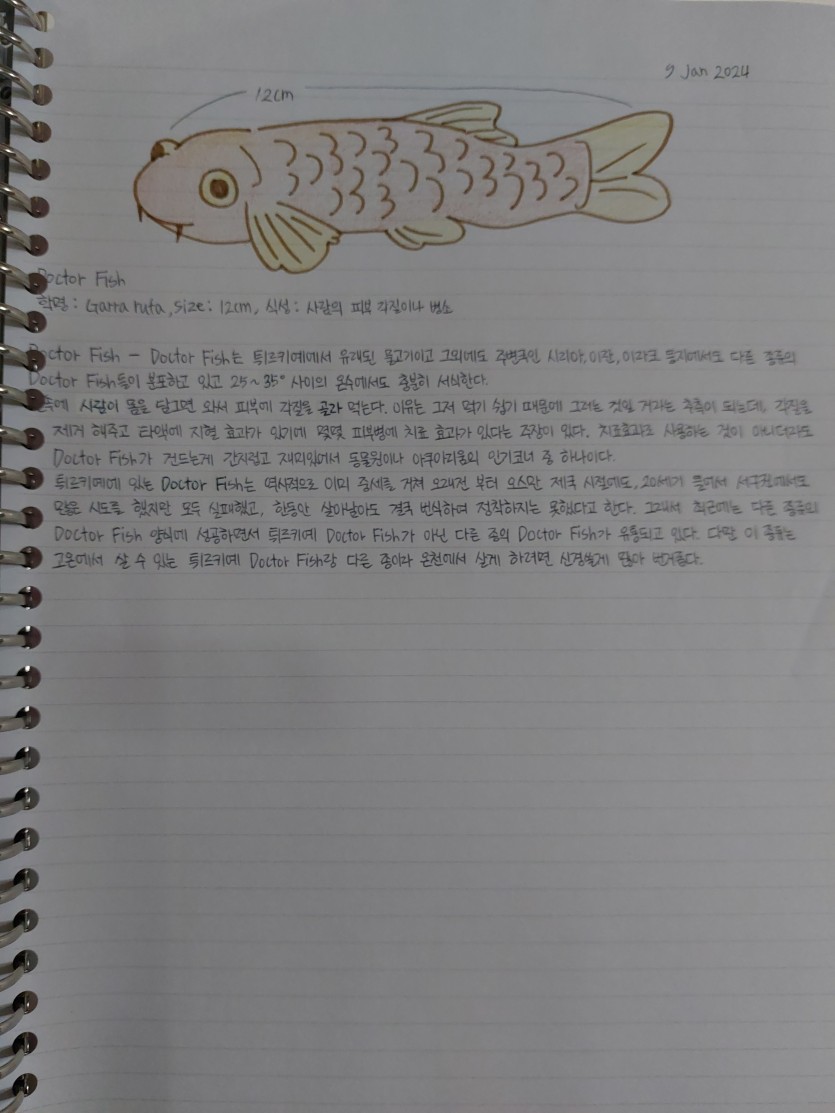 9 Jan 2024
12cm
Doctor Fish
학명 : Garra rufa, size : 12cm, 식성 : 사람의 피부 각질이나 병소
Doctor Fish - Doctor Fish는 튀르키예에서 유래된 물고기이고 그외에도 주변국인 시리아, 이란, 이라크 등지에서도 다른 종류의
Doctor Fish들이 분포하고 있고 25~35° 사이의 온수에서도 충분히 서식한다.
사람이 몸을 담그면 와서 피부에 각질을 골라 먹는다. 이유는 그저 먹기 쉽기 때문에 그러는 것일 거라는 추측이 되는데, 각질을
제거 해주고 타액에 지혈 효과가 있기에 몇몇 피부병에 치료 효과가 있다는 주장이 있다. 치료효과로 사용하는 것이 아니더라도
Doctor Fish가 건드는게 간지럽고 재미있어서 동물원이나 아쿠아리움의 인기코너 중 하나이다.
튀르키예에 있는 Doctor Fish는 역사적으로 이미 중세를 거쳐 오래전 부터 오스만 제국 시절에도, 20세기 들어서 서구권에서도
많은 시도를 했지만 모두 실패했고, 한동안 살아남아도 결국 번식하여 정착하지는 못했다고 한다. 그래서 최근에는 다른 종류의
Doctor Fish 양식에 성공하면서 튀르키예 Doctor Fish가 아닌 다른 종의 Doctor Fish가 유통되고 있다. 다만 이 종들는
고온에서 살 수 있는 튀르키예 Doctor Fish랑 다른 종이라 온천에서 살게 하려면 신경쓸게 많아 번거롭다.